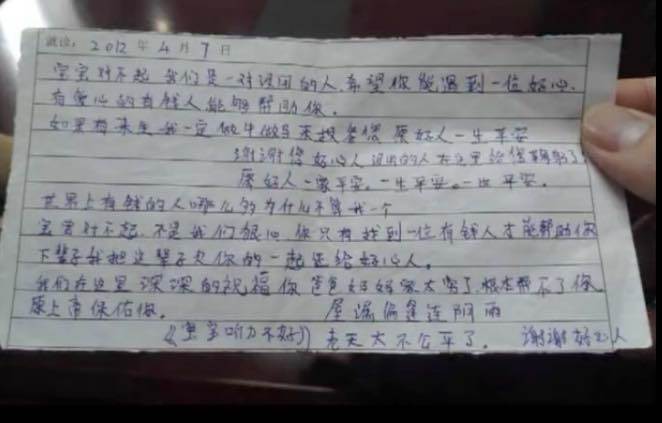 2012年4月7日
宝宝对不起 我们是一对没用的人,希望你能遇到一位好心.
有爱心的有钱人能够帮助你.
如果有来生我一定做牛做马来报答您 愿好人一生平安
谢谢您 好心人 没用的人在这里给您磕头了
愿好人一家平安.一生平安.一世平安.
世界上有钱的人哪么多为什么不算我一个
宝宝对不起.不是我们狠心 你只有找到一位有钱人才能帮助你
下辈子我把这辈子欠你的一起还给好心人.
我们在这里深深的祝福你 爸爸妈妈实太穷了.根本帮不了你
愿上帝保佑你. 屋漏偏逢连阴雨
(宝宝听力不好) 老天太不公平了. 谢谢好心人